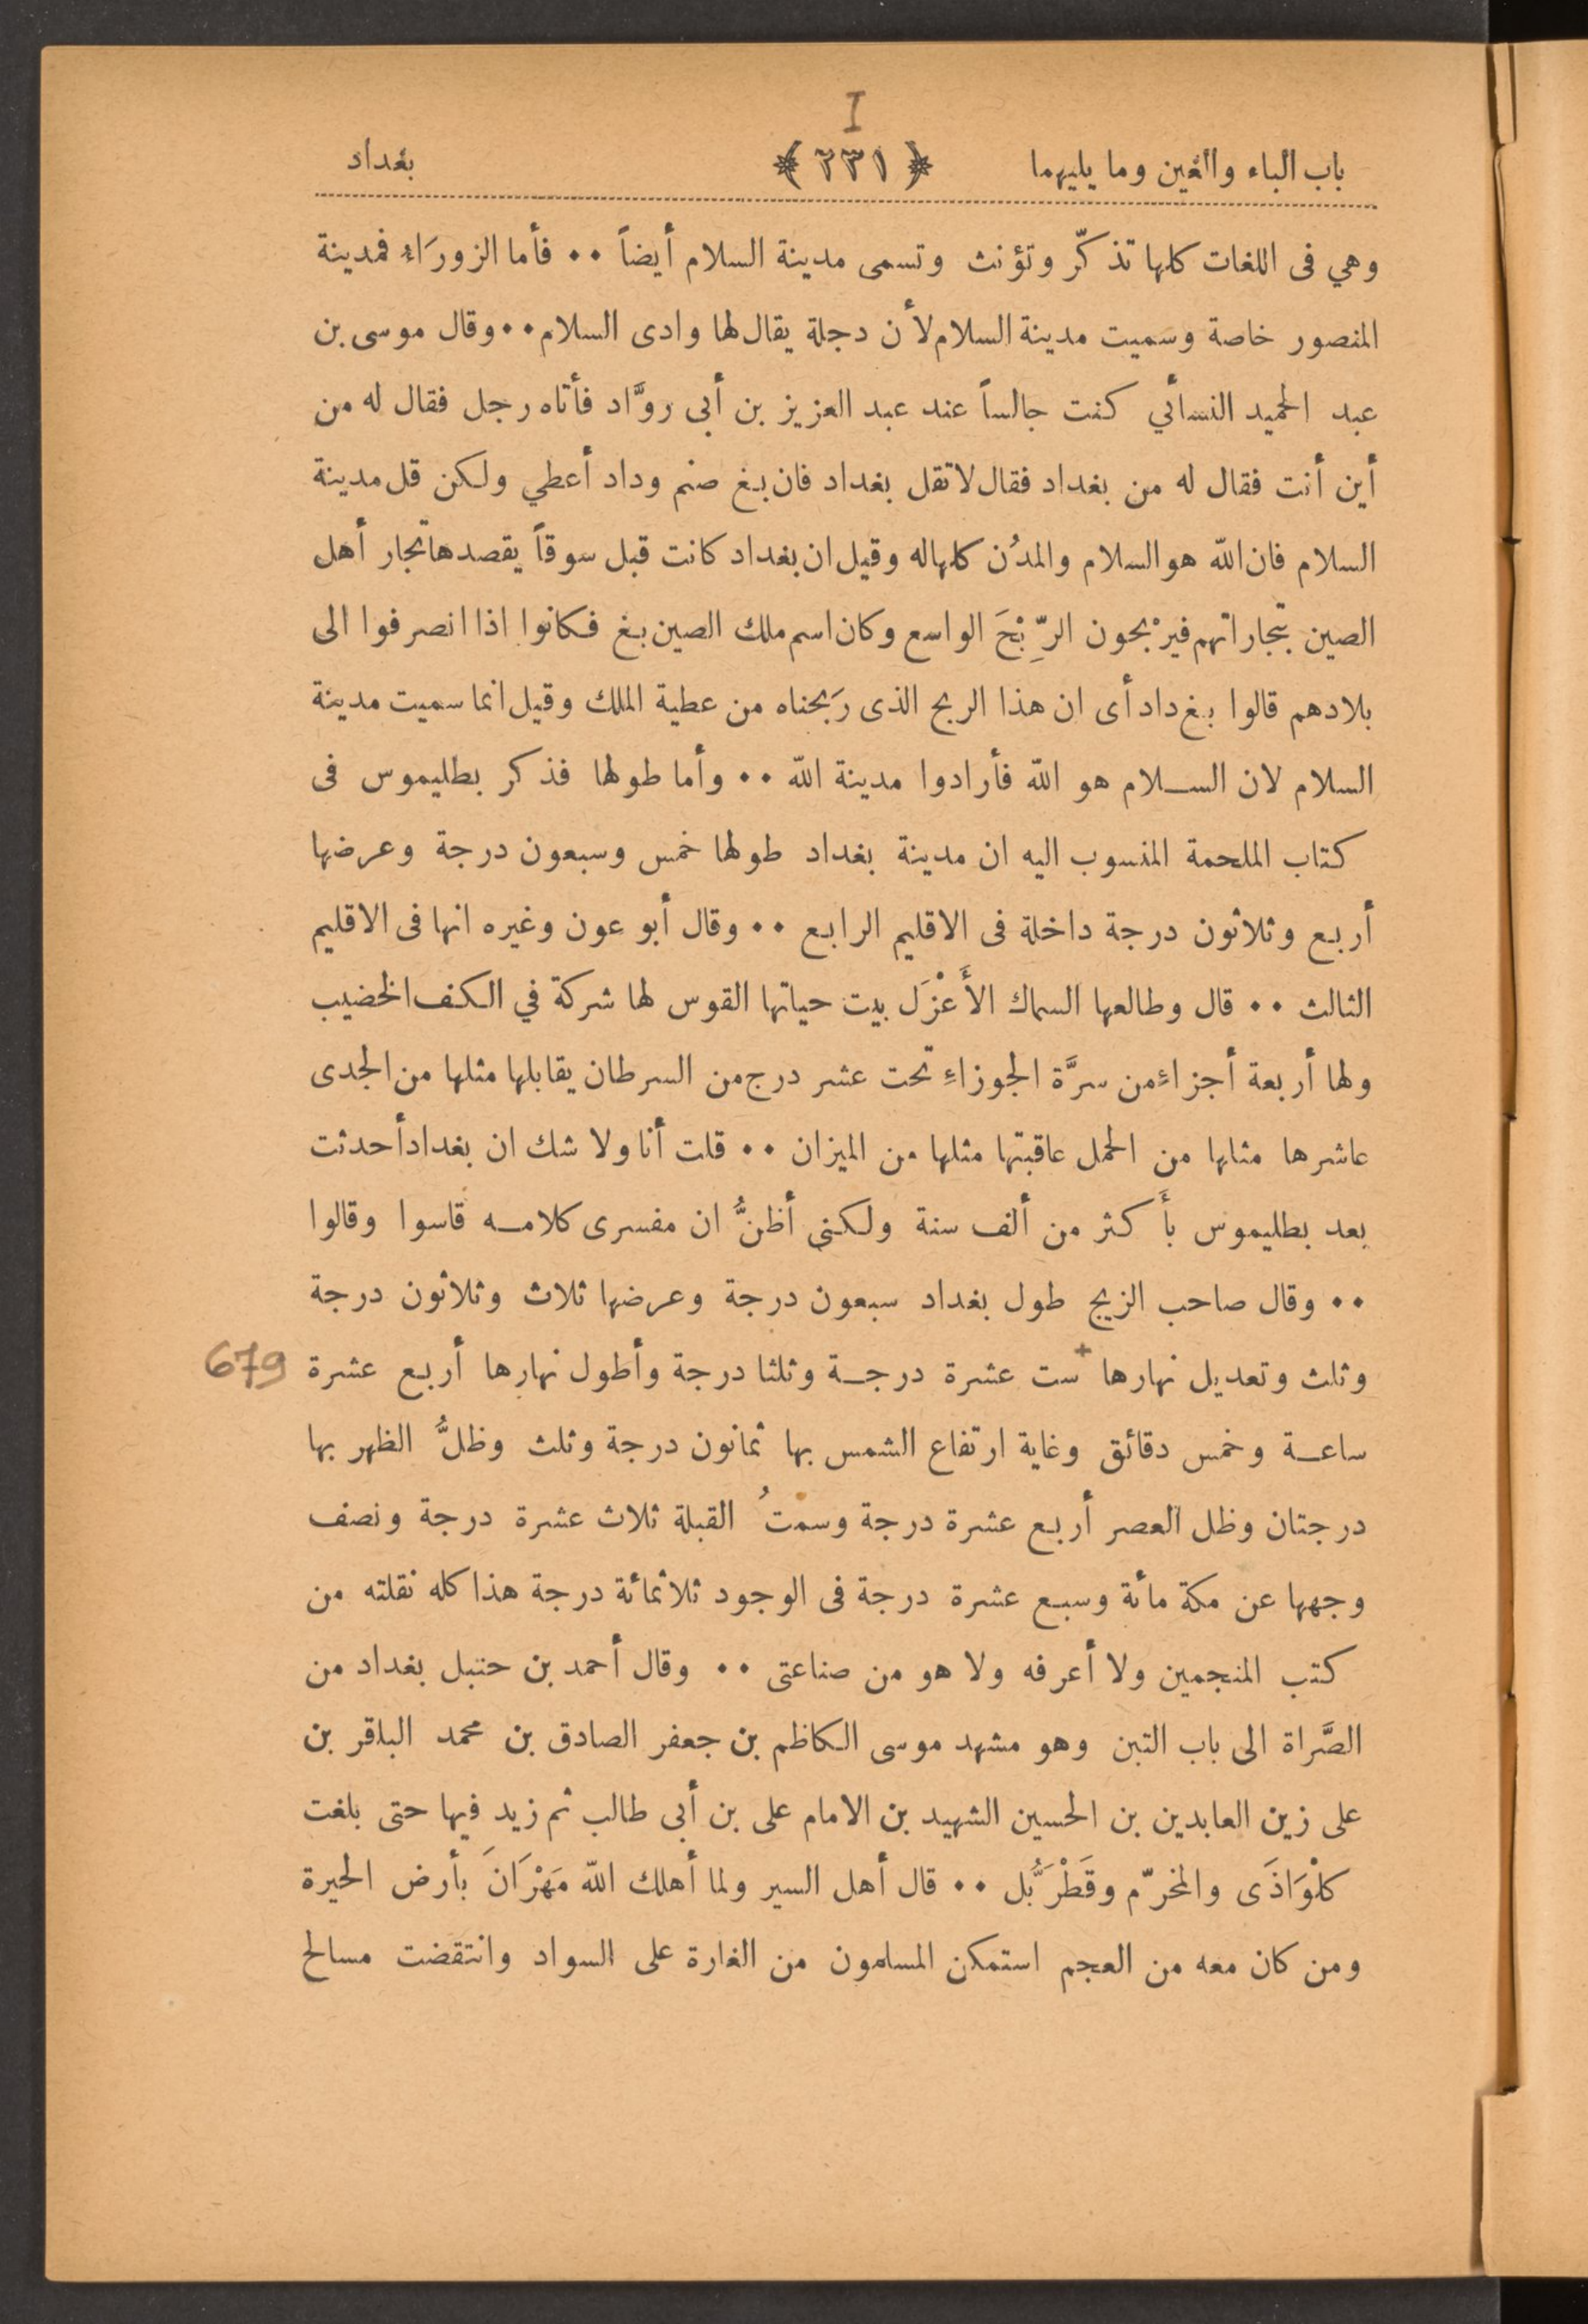 I
باب الباء والغين وما يليهما ﴿ ٢٣١ ﴾ بغداد
وهي فى اللغات كلها تذكّر وتؤنث وتسمى مدينة السلام أيضاً ٠٠ فأما الزورَاءُ فمدينة
المنصور خاصة وسميت مدينة السلام لأن دجلة يقال لها وادى السلام ٠٠ وقال موسى بن
عبد الحميد النسائي كنت جالساً عند عبد العزيز بن أبى روَّاد فأتاه رجل فقال له من
أين أنت فقال له من بغداد فقال لا تقل بغداد فان بغ صنم وداد أعطي ولكن قل مدينة
السلام فان الله هو السلام والمدُن كلها له وقيل ان بغداد كانت قبل سوقاً يقصدها تجار أهل
الصين بتجاراتهم فيرْبحون الرِّبْحَ الواسع وكان اسم ملك الصين بغ فكانوا اذا انصرفوا الى
بلادهم قالوا بغ داد أى ان هذا الربح الذى رَبحناه من عطية الملك وقيل انما سميت مدينة
السلام لان الســلام هو الله فأرادوا مدينة الله ٠٠ وأما طولها فذكر بطليموس فى
كتاب الملحمة المنسوب اليه ان مدينة بغداد طولها خمس وسبعون درجة وعرضها
أربع وثلاثون درجة داخلة فى الاقليم الرابع ٠٠ وقال أبو عون وغيره انها فى الاقليم
الثالث ٠٠ قال وطالعها السماك الأَعْزَل بيت حياتها القوس لها شركة في الكف الخضيب
ولها أربعة أجزاءٍ من سرَّة الجوزاءِ تحت عشر درج من السرطان يقابلها مثلها من الجدى
عاشرها مثلها من الحمل عاقبتها مثلها من الميزان ٠٠ قلت أنا ولا شك ان بغداد أحدثت
بعد بطليموس بأَكثر من ألف سنة ولكنى أظنُّ ان مفسرى كلامــه قاسوا وقالوا
٠٠ وقال صاحب الزيج طول بغداد سبعون درجة وعرضها ثلاث وثلاثون درجة
وثلث وتعديل نهارها + ست عشرة درجــة وثلثا درجة وأطول نهارها أربع عشرة 679
ساعــة وخمس دقائق وغاية ارتفاع الشمس بها ثمانون درجة وثلث وظلُّ الظهر بها
درجتان وظل العصر أربع عشرة درجة وسمْتُ القبلة ثلاث عشرة درجة ونصف
وجهها عن مكة مائة وسبع عشرة درجة فى الوجود ثلاثمائة درجة هذا كله نقلته من
كتب المنجمين ولا أعرفه ولا هو من صناعتى ٠٠ وقال أحمد بن حنبل بغداد من
الصَّراة الى باب التبن وهو مشهد موسى الكاظم بن جعفر الصادق بن محمد الباقر بن
على زين العابدين بن الحسين الشهيد بن الامام على بن أبى طالب ثم زيد فيها حتى بلغت
كلْوَاذَى والمخرّم وقَطْرَبُّل ٠٠ قال أهل السير ولما أهلك الله مَهْرَانَ بأرض الحيرة
ومن كان معه من العجم استمكن المسلمون من الغارة على السواد وانتقضت مسالح